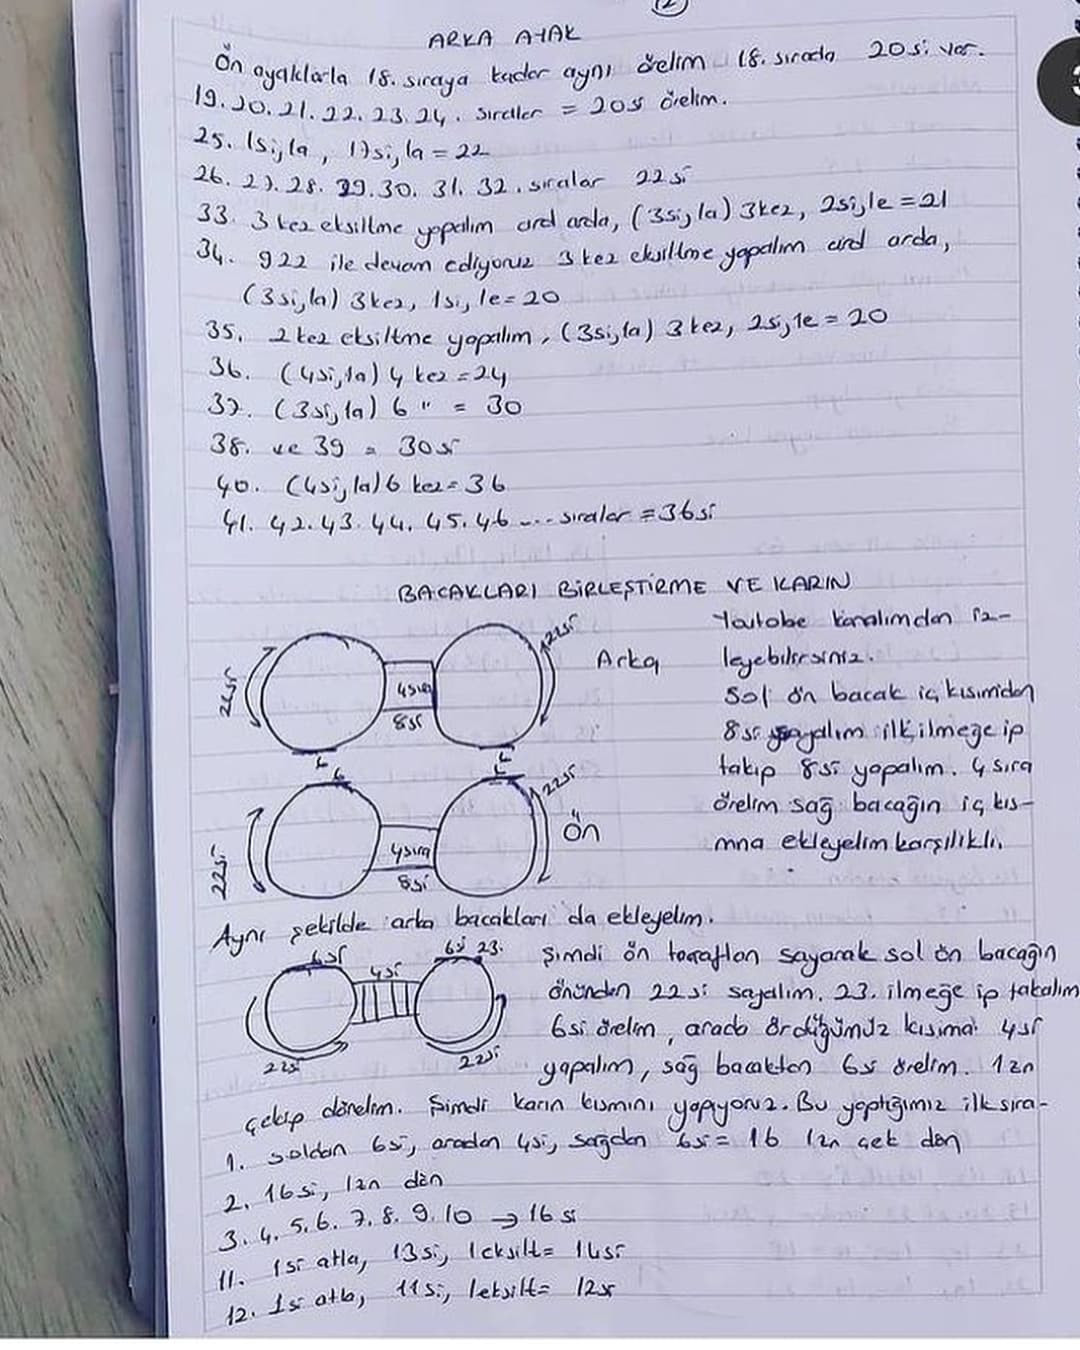 ARKA AYAK
Ön ayaklarla 18. sıraya kadar aynı örelim 18. sırada 20si var.
19. 20. 21. 22. 23. 24. sıralar = 20si örelim.
25. 1si, 1a, 17si, 1a = 22
26. 27. 28. 29. 30. 31. 32. sıralar 22si
33. 3 kez eksiltme yapalım ard arda, (3si, 1a) 3kez, 2si, 1e = 21
34. 922 ile devam ediyoruz 3 kez eksiltme yapalım ard arda,
(3si, 1a) 3kez, 1si, 1e = 20
35. 2 kez eksiltme yapalım, (3si, 1a) 3 kez, 2si, 1e = 20
36. (4si, 1a) 4 kez = 24
37. (3si, 1a) 6 " = 30
38. ve 39 = 30si
40. (4si, 1a) 6 kez = 36
41. 42. 43. 44. 45. 46 .... sıralar = 36si
BACAKLARI BİRLEŞTİRME VE KARIN
22si
4sıra
8si
22si
Arka
22si
4sıra
8si
22si
Ön
Youtobe kanalımdan iz-
leyebilirsiniz.
Sol ön bacak iç kısımdan
8si sayalım ilk ilmeğe ip
takıp 8si yapalım. 4 sıra
örelim sağ bacağın iç kıs-
mna ekleyelim karşılıklı.
Aynı şekilde arka bacakları da ekleyelim.
6si
4si
6si 23.
22si
22si
Şimdi ön taraftan sayarak sol ön bacağın
önünden 22si sayalım. 23. ilmeğe ip takalım
6si örelim, arada ördüğümüz kısıma 4si
yapalım, sağ bacaktan 6si örelim. 1zn
çekip dönelim. Şimdi karın kısmını yapıyoruz. Bu yaptığımız ilk sıra-
1. soldan 6si, aradan 4si, sağdan 6si = 16 1zn çek dön
2. 16si, 1zn dön
3. 4. 5. 6. 7. 8. 9. 10 → 16si
11. 1si atla, 13si, 1eksilt = 14si
12. 1si atla, 11si, 1eksilt = 12si